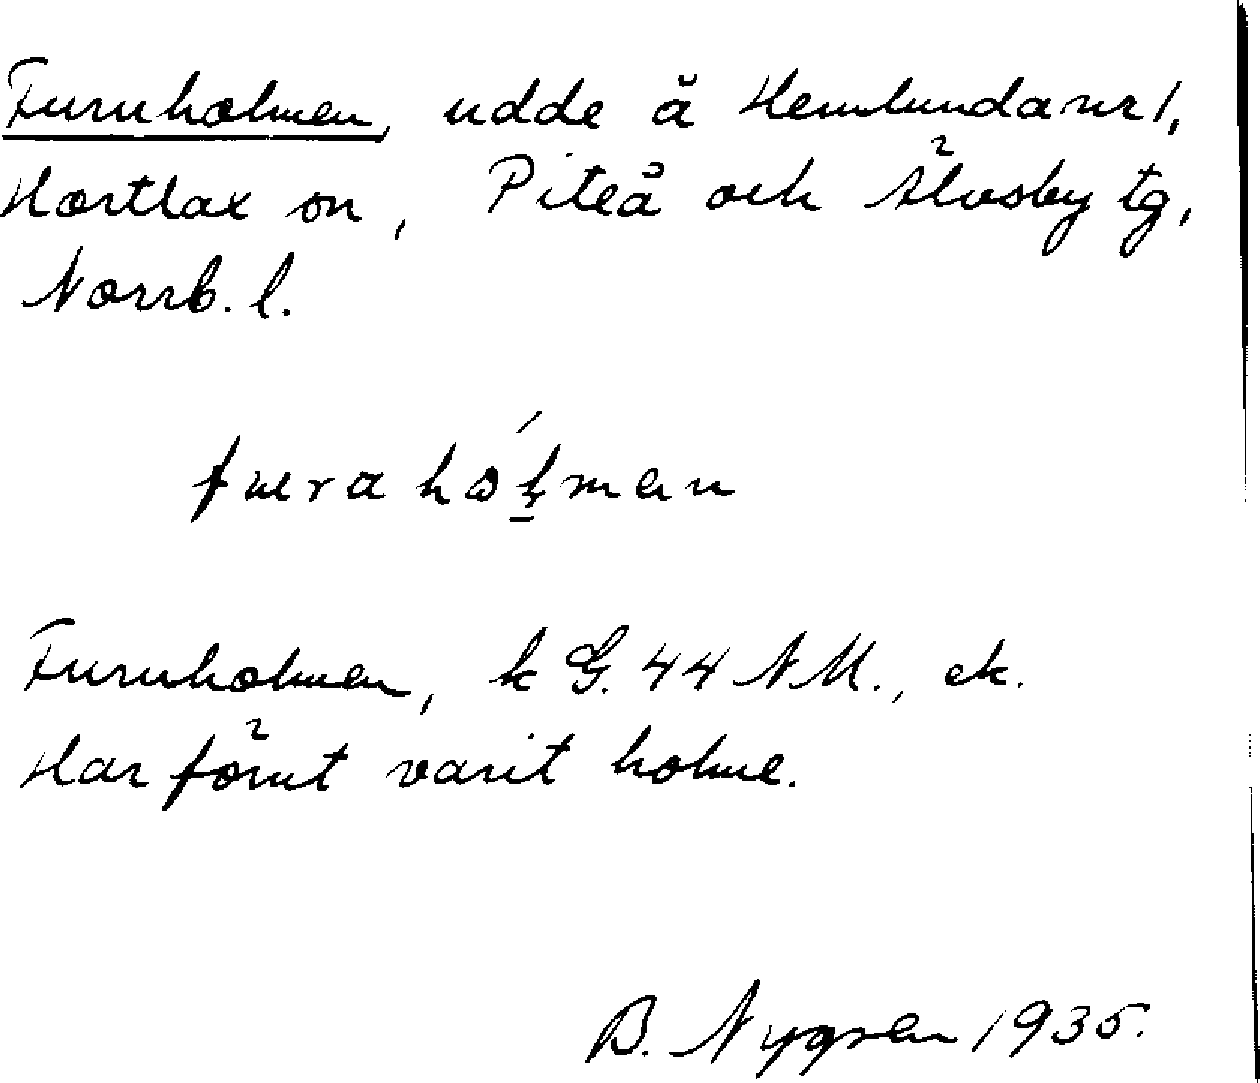 Furuholmen, udde å Hemlunda nr 1,
Hortlax sn, Piteå och Älvsby tg,
Norrb. l.
furahóļman
Furuholmen, k G. 44 NM., ek.
Har förut varit holme.
B. Nygren 1935.